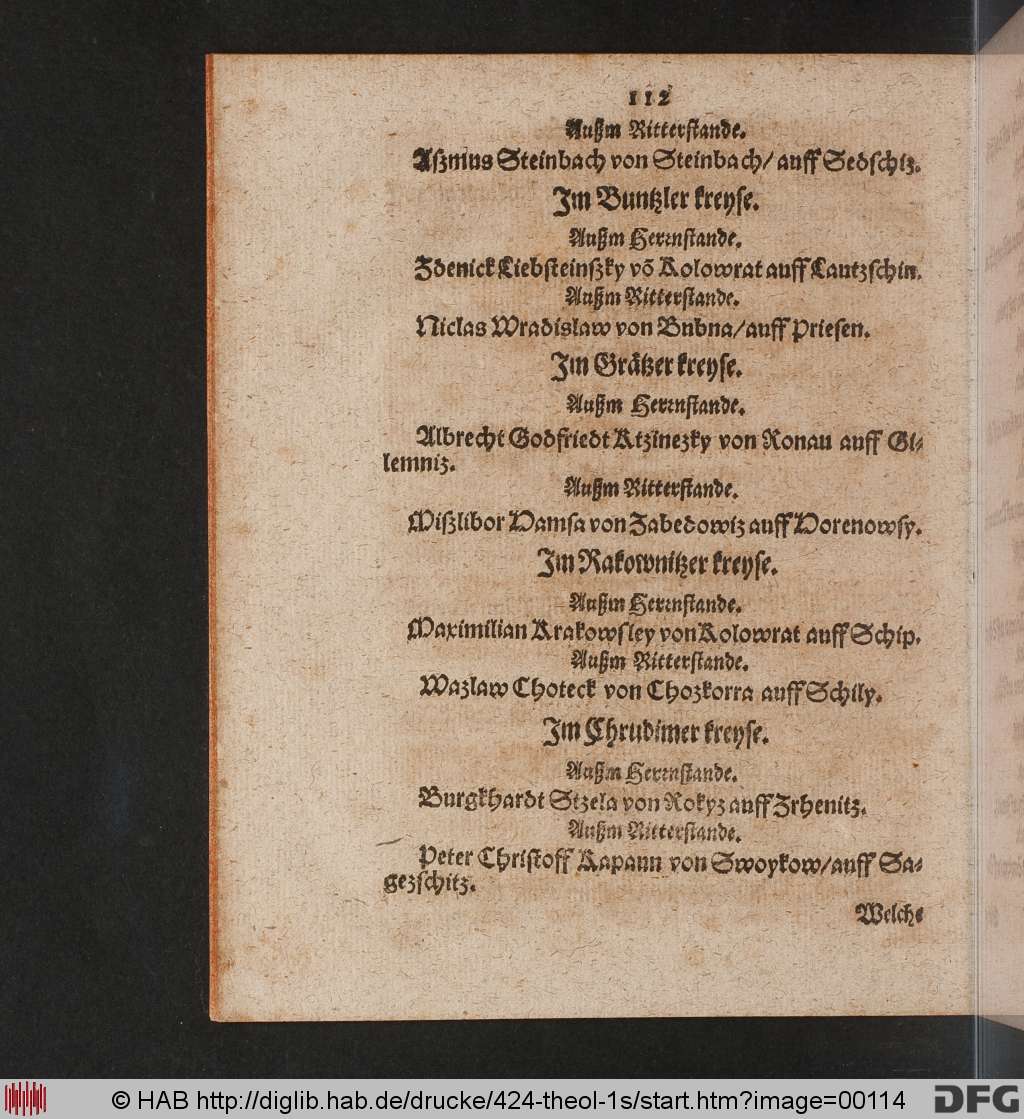 112
Außm Ritterstande.
Aßmus Steinbach von Steinbach/ auff Sedschiz.
Im Buntzler kreyse.
Außm Herrnstande.
Zdenick Liebsteinßky võ Kolowrat auff Lautzschin.
Außm Ritterstande.
Niclas Wradislaw von Bubna/auff Priesen.
Im Grätzer kreyse.
Außm Herrnstande.
Albrecht Godfriedt Ktzinezky von Ronau auff Gi-
lemniz.
Außm Ritterstande.
Mißlibor Hamsa von Zabedowiz auff Horenowsy.
Im Rakownitzer kreyse.
Außm Herrnstande.
Maximilian Krakowsley von Kolowrat auff Schip.
Außm Ritterstande.
Wazlaw Choteck von Chozkorra auff Schily.
Im Chrudimer kreyse.
Außm Herrnstande.
Burgkhardt Stzela von Rokyz auff Zrhenitz.
Außm Ritterstande.
Peter Christoff Kapann von Swoykow/auff Sa-
gezschitz.
Welche
© HAB http://diglib.hab.de/drucke/424-theol-1s/start.htm?image=00114
DFG